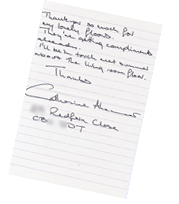 Thankyou so much for
my lovely floors.
They're getting compliments
already.
I'll be in touch next summer
above the living room floor.
Thanks
Catherine
Redfern Close
CB 5T